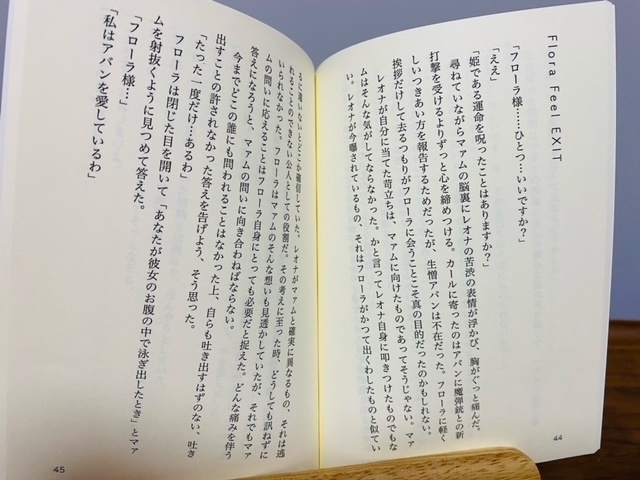 Flora Feel EXIT
「フローラ様……ひとつ…いいですか？」
「ええ」
「姫である運命を呪ったことはありますか？」
尋ねていながらマァムの脳裏にレオナの苦渋の表情が浮かび、胸がぐっと痛んだ。
打撃を受けるよりずっと心を締めつける。カールに寄ったのはアバンに魔弾銃との新
しいつきあい方を報告するためだったが、生憎アバンは不在だった。フローラに軽く
挨拶だけして去るつもりがフローラに会うことこそ真の目的だったのかもしれない。
レオナが自分に当てた苛立ちは、マァムに向けたものであってそうじゃない。マァ
ムはそんな気がしてならなかった。かと言ってレオナ自身に叩きつけたものでもな
い。レオナが今曝されているもの、それはフローラがかつて出くわしたものと似てい
44
るに違いないとどこか確信していた。レオナがマァムと確実に異なるもの、それは逃
れることのできない公人としての役割だ。その考えに至った時、どうしても訊ねずに
いられなかった。フローラはマァムのそんな想いも見透かしていたが、それでもマァ
ムの問いに応えることはフローラ自身にとっても必要だと捉えた。どんな痛みを伴う
答えになろうと、マァムの問いに向き合わねばならない。
今までどこの誰にも問われることはなかった上、自らも吐き出すはずのない、吐き
出すことの許されなかった答えを告げよう、そう思った。
「たった一度だけ…あるわ」
フローラは閉じた目を開いて「あなたが彼女のお腹の中で泳ぎ出したとき」とマァ
ムを射抜くように見つめて答えた。
「フローラ様…」
「私はアバンを愛しているわ」
45